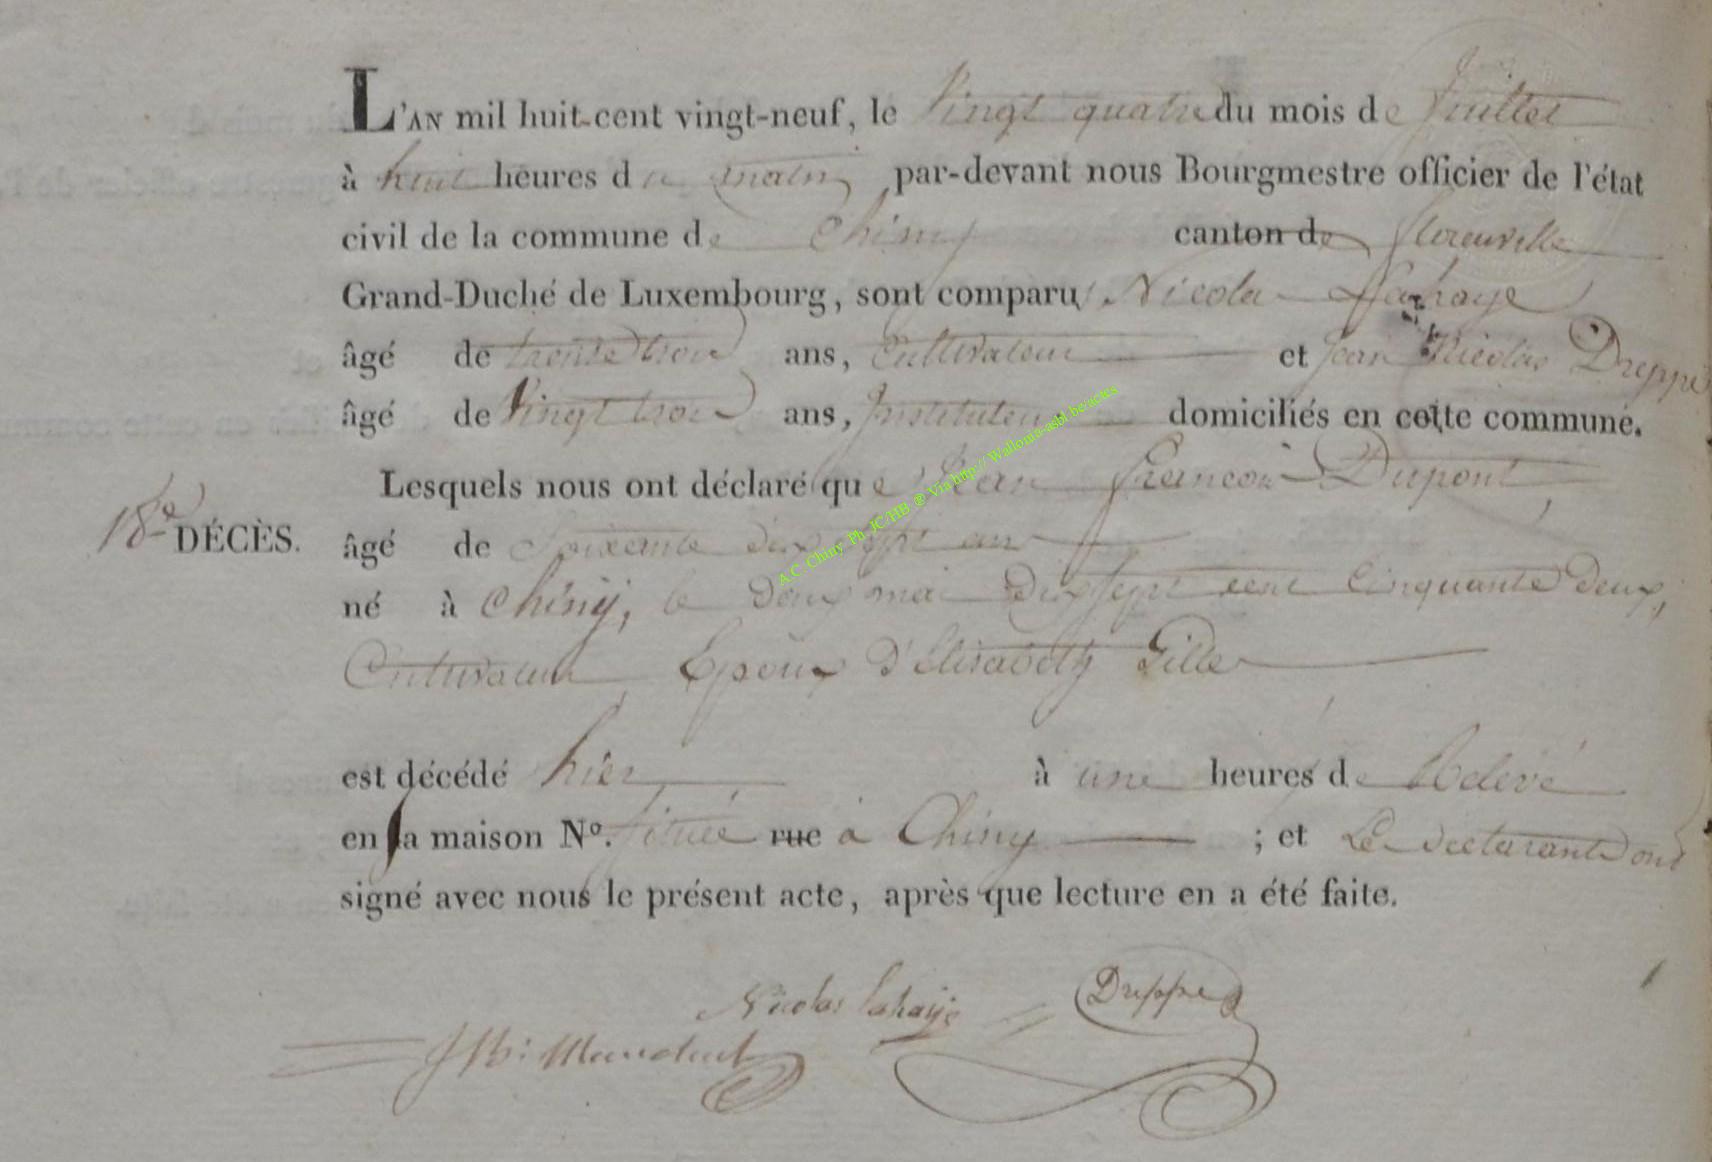 L'AN mil huit-cent vingt-neuf, le Vingt quatre du mois de Juillet
à huit heures du matin, par-devant nous Bourgmestre officier de l'état
civil de la commune de Chiny canton de florenville
Grand-Duché de Luxembourg, sont comparu Nicolas Lahaye
âgé de trente trois ans, Cultivateur et Jean Nicolas Dreppe
âgé de Vingt trois ans, Instituteur domiciliés en cette commune.
Lesquels nous ont déclaré que Jean françois Dupont,
18e DÉCÈS. âgé de Soixante dix sept ans
né à Chiny, le deux mai Dix sept cent Cinquante deux,
Cultivateur Epoux d'Elisabeth Gille
est décédé hier à une heures de Relevé
en sa maison No. située rue à Chiny ; et Les déclarants ont
signé avec nous le présent acte, après que lecture en a été faite.
Nicolas Lahaye Dreppe
A.C. Chiny Ph. JC/HB ® Via http:// Wallonia-asbl.be/actes